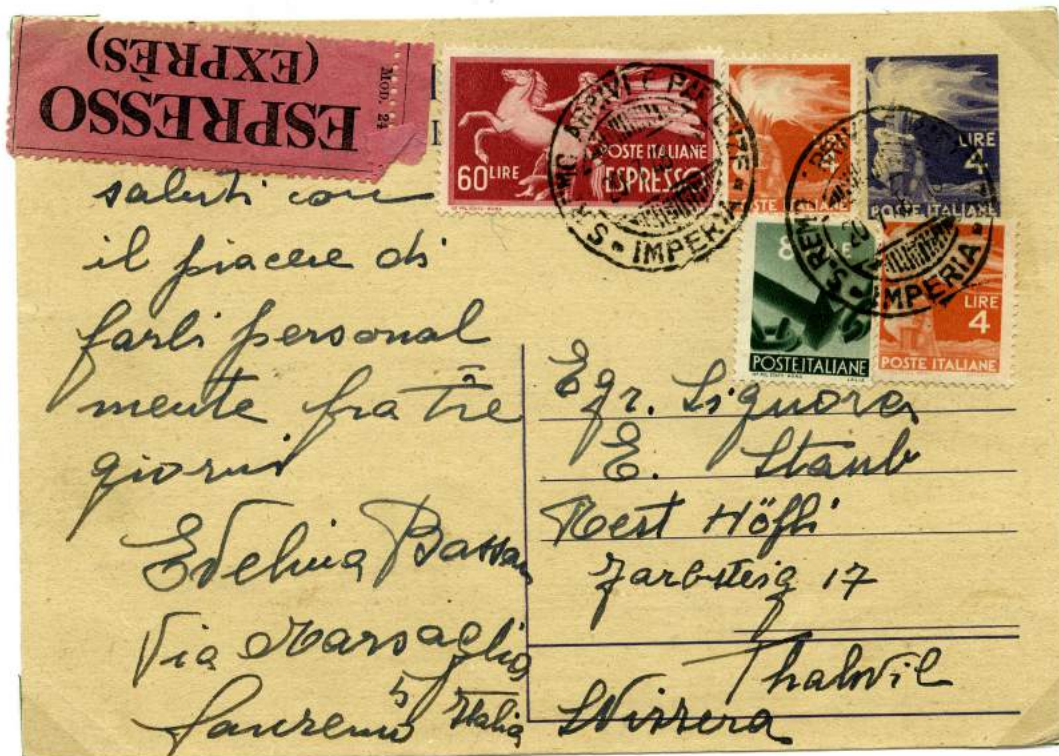 ESPRESSO
(EXPRÈS)
MOD. 24
60 LIRE
POSTE ITALIANE
ESPRESSO
4
POSTE ITALIANE
LIRE
4
POSTE ITALIANE
8
POSTE ITALIANE
LIRE
4
POSTE ITALIANE
S. REMO ARRIVI E PARTENZE
IMPERIA
S. REMO
IMPERIA
saluti con
il piacere di
farli personal
mente fra tre
giorni
Edelina Bassan
Via Marsaglia
5
Sanremo Italia
Egr. Signora
E. Staub
Rest Höfli
Farbsteig 17
Thalwil
Svizzera